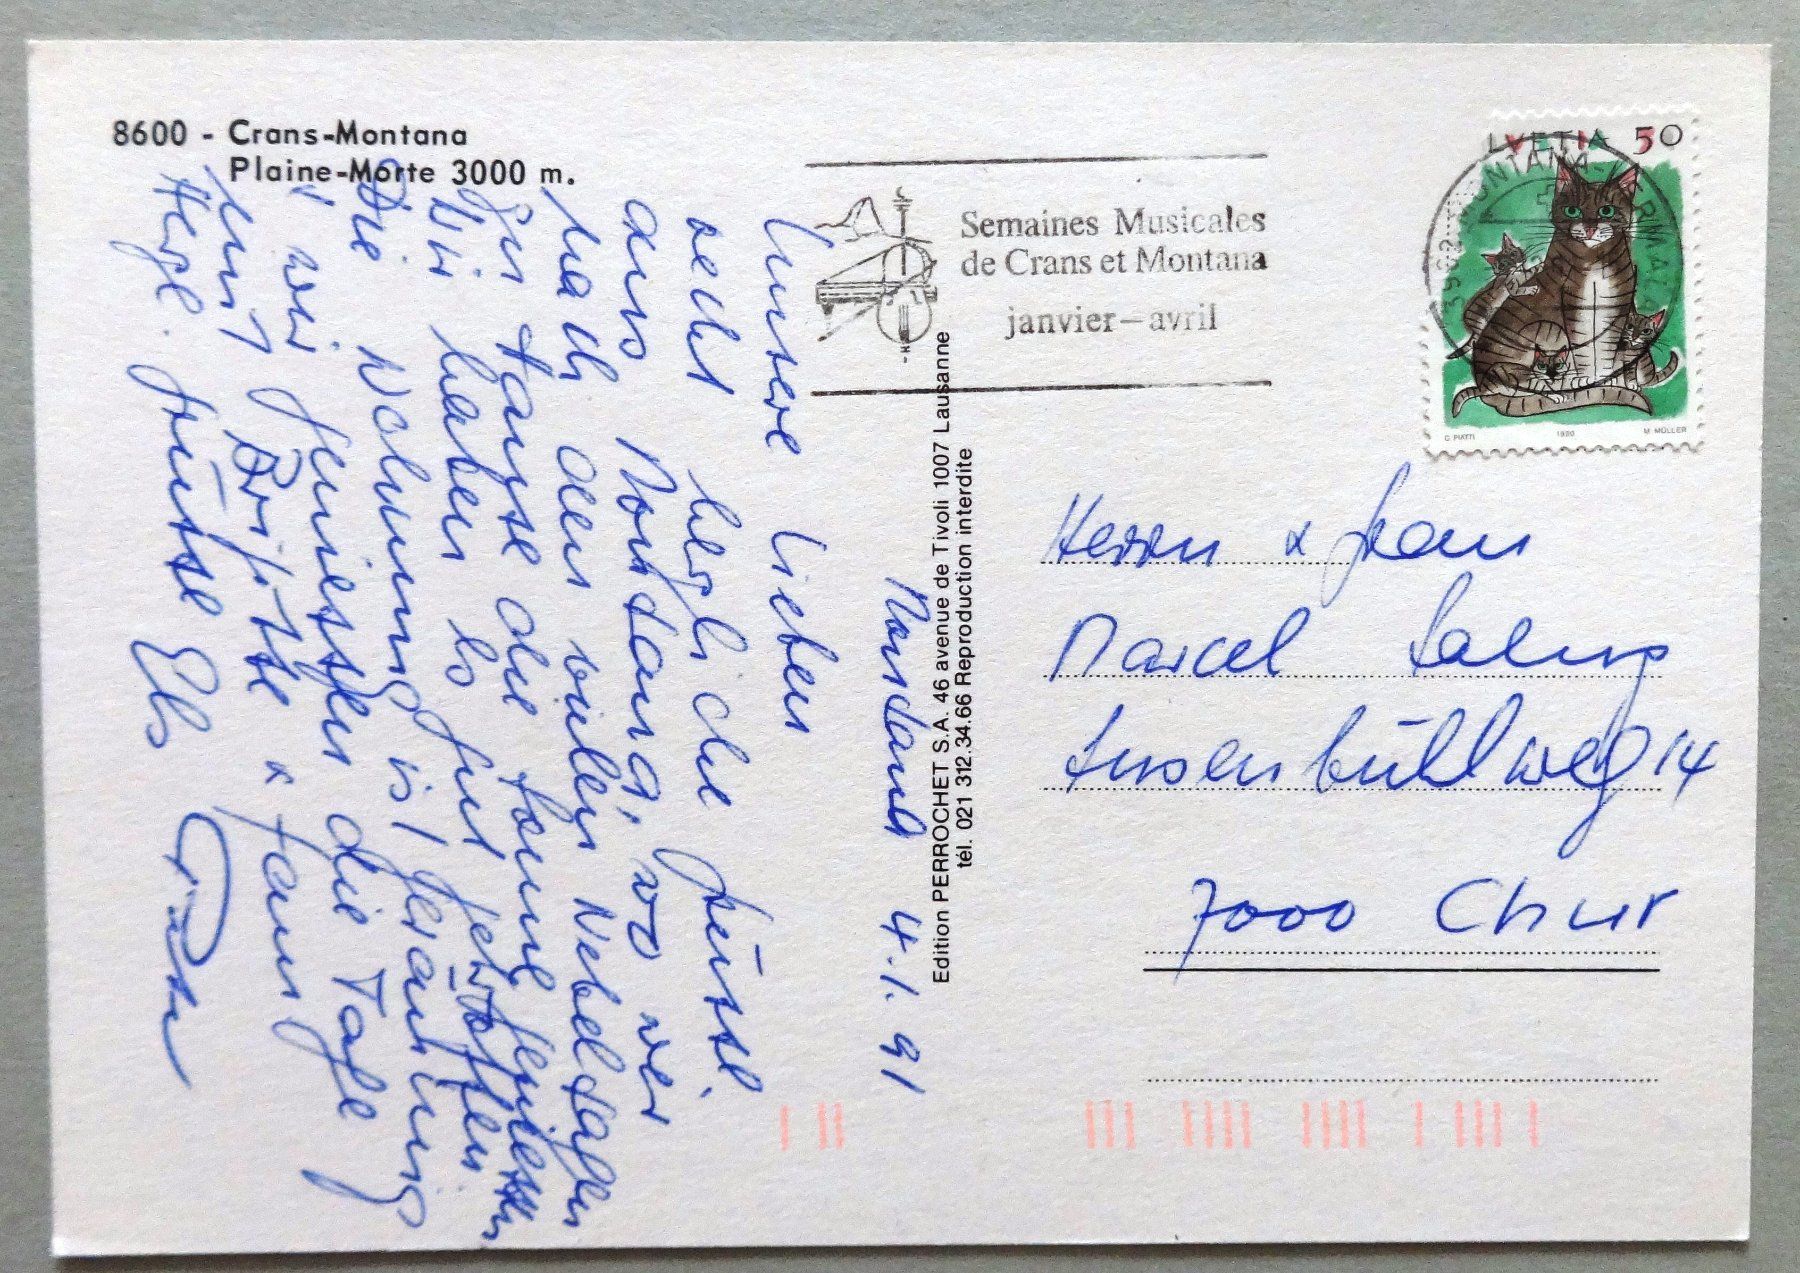 8600 - Crans-Montana
Plaine-Morte 3000 m.
Semaines Musicales
de Crans et Montana
janvier – avril
HELVETIA 50
C. PIATTI 1990 M. MÜLLER
Edition PERROCHET S.A. 46 avenue de Tivoli 1007 Lausanne
tél. 021 312.34.66 Reproduction interdite
Montana 4.1.91
Unsere Lieben
recht herzliche Grüsse
aus Montana, wo wir
nach den vielen Nebeltagen
zu Hause die Sonne geniessen
Wir haben es gut getroffen
Die Wohnung ist geräumig
u wir geniessen die Tage
mit Brigitte u Fam
Herzl. Grüsse Els
Herrn & Frau
Marcel
14
7000 Chur